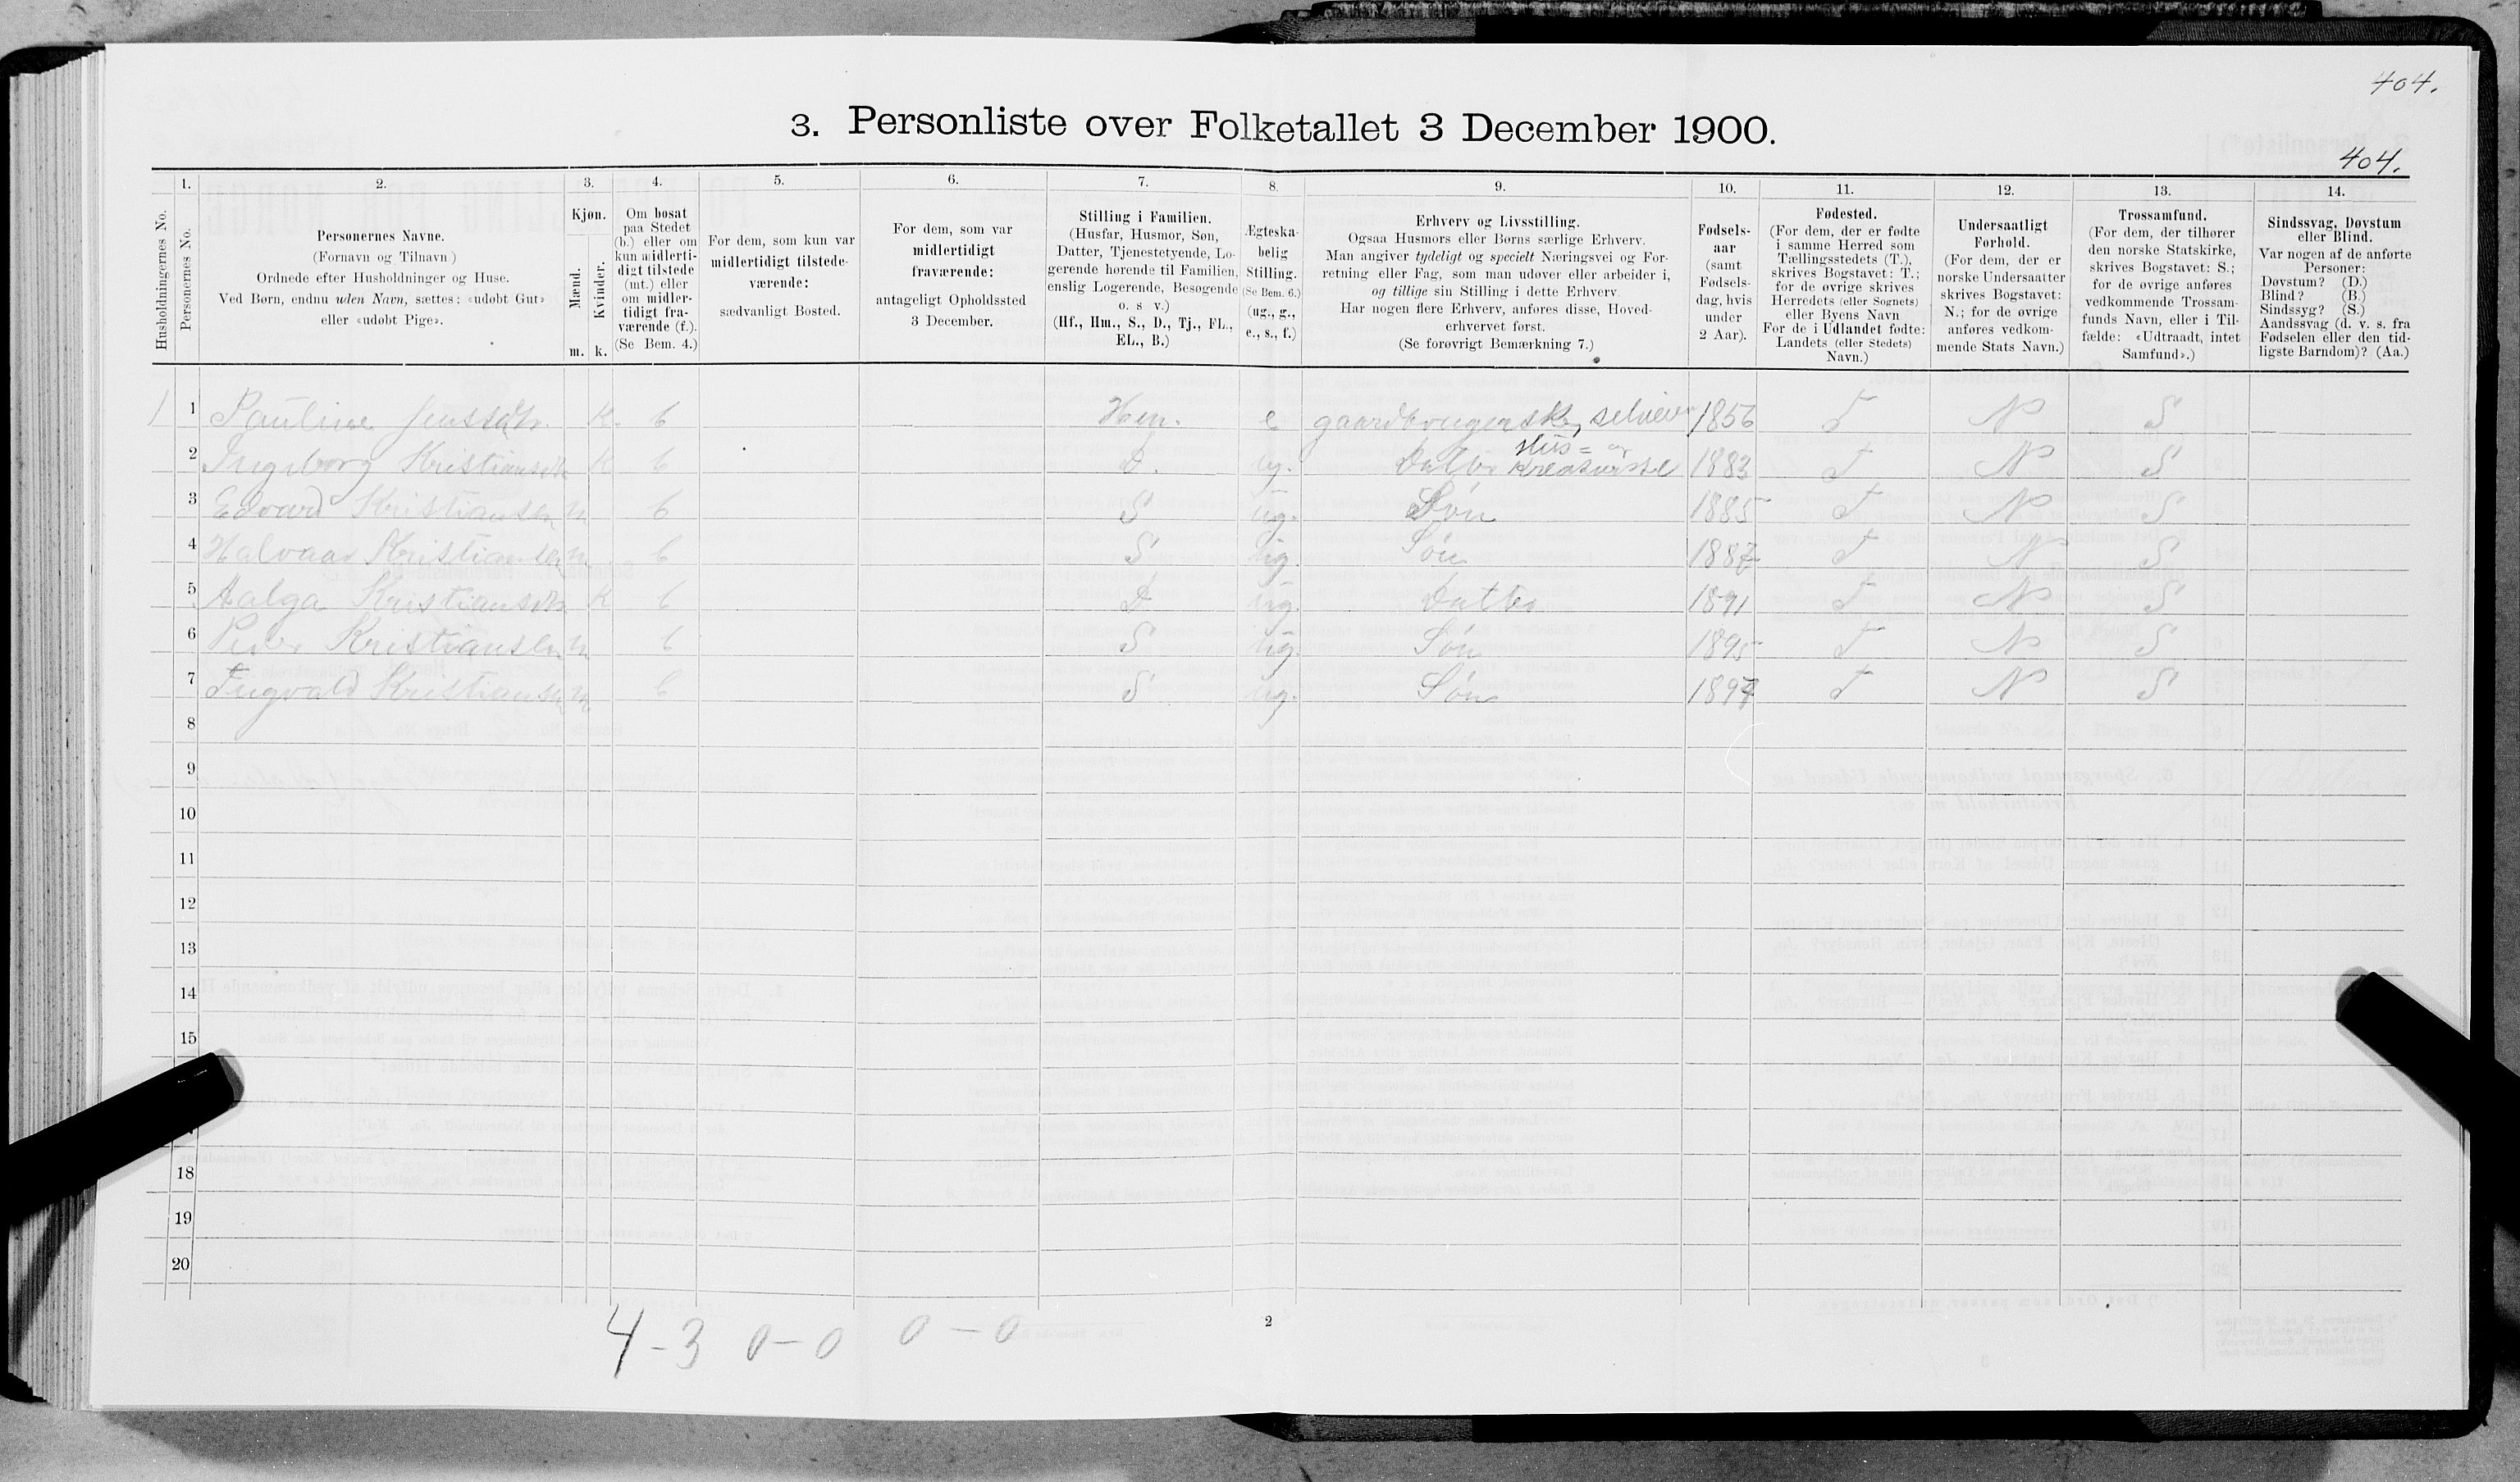 404.
3. Personliste over Folketallet 3 December 1900.
404.
Husholdningernes No.
1.
Personernes No.
2.
Personernes Navne.
(Fornavn og Tilnavn )
Ordnede efter Husholdninger og Huse.
Ved Børn, endnu uden Navn, sættes: «udøbt Gut»
eller «udøbt Pige».
3.
Kjøn.
Mænd.
Kvinder.
m. k.
4.
Om bosat
paa Stedet
(b.) eller om
kun midlerti-
digt tilstede
(mt.) eller
om midler-
tidigt fra-
værende (f.).
(Se Bem. 4.)
5.
For dem, som kun var
midlertidigt tilstede-
værende:
sædvanligt Bosted.
6.
For dem, som var
midlertidigt
fraværende:
antageligt Opholdssted
3 December.
7.
Stilling i Familien.
(Husfar, Husmor, Søn,
Datter, Tjenestetyende, Lo-
gerende hørende til Familien,
enslig Logerende, Besøgende
o. s v.)
(Hf., Hm., S., D., Tj., FL.,
EL., B.)
8.
Ægteska-
belig
Stilling.
(Se Bem. 6.)
(ug., g.,
e., s., f.)
9.
Erhverv og Livsstilling.
Ogsaa Husmors eller Børns særlige Erhverv.
Man angiver tydeligt og specielt Næringsvei og For-
retning eller Fag, som man udøver eller arbeider i,
og tillige sin Stilling i dette Erhverv.
Har nogen flere Erhverv, anføres disse, Hoved-
erhvervet først.
(Se forøvrigt Bemærkning 7.)
10.
Fødsels-
aar
(samt
Fødsels-
dag, hvis
under
2 Aar).
11.
Fødested.
(For dem, der er fødte
i samme Herred som
Tællingsstedets (T.),
skrives Bogstavet: T.;
for de øvrige skrives
Herredets (eller Sognets)
eller Byens Navn
For de i Udlandet fødte:
Landets (eller Stedets)
Navn.)
12.
Undersaatligt
Forhold.
(For dem, der er
norske Undersaatter
skrives Bogstavet:
N.; for de øvrige
anføres vedkom-
mende Stats Navn.)
13.
Trossamfund.
(For dem, der tilhører
den norske Statskirke,
skrives Bogstavet: S.;
for de øvrige anføres
vedkommende Trossam-
funds Navn, eller i Til-
fælde: «Udtraadt, intet
Samfund».)
14.
Sindssvag, Døvstum
eller Blind.
Var nogen af de anførte
Personer:
Døvstum? (D.)
Blind? (B.)
Sindssyg? (S.)
Aandssvag (d. v. s. fra
Fødselen eller den tid-
ligste Barndom)? (Aa.)
1 1 Pauline Jensdtr. K. b Hm. e gaardbrugerske, selveier 1856 T N S
2 Ingeborg Kristiansdtr K b D. ug. Datter Hus= og Kreaturstel 1883 T N S
3 Edvard Kristiansen m b S ug. Søn 1885 T N S
4 Halvaar Kristiansen m. b S ug. Søn 1887 T N S
5 Aalga Kristiansdtr K b D ug. Datter 1891 T N S
6 Peder Kristiansen m b S ug. Søn 1895 T N S
7 Ingvald Kristiansen m b S ug. Søn 1897 T N S
8
9
10
11
12
13
14
15
18
19
20
4-3 0-0 0-0
2